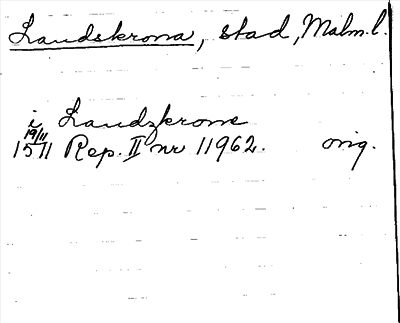 Landskrona, stad, Malm.l.
i Landzkrone
19/11
1511 Rep. II nr 11962. orig.